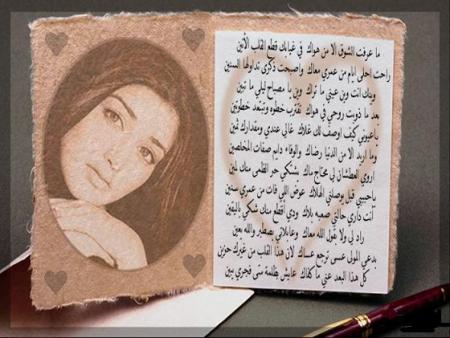 ما عرفت الشوق الا من هواك في غيابك قطع القلب الأنين
راحت احلى ايام من عمري معاك واصبحت ذكرى تداولها السنين
وينك انت وين عيني ما تراك وين يا مصباح ليلي ما تبين
بعد ما ذوبت روحي في هواك تقترب خطوه وتبعد خطوتين
ياعيوني كيف اوصف لك غلاك غالي عندي ومقدارك ثمين
وما اريد الا من الدنيا رضاك والوفاء دايم صفات المخلصين
اروي العطشان لي محتاج ماك يشتكي حر الظمي منك يلين
ياحبيبي قبل يوصلني الهلاك عوض اللي فات من عمري سنين
أنت داري حالتي صعبه بلاك ودي اقطع منك شكي باليقين
راد لي ولا نقول الله معاك وعابلاني نصطبر والله يعين
يدعي المولى عسى ترجع عساك لان هذا القلب من غيرك حزين
كل هذا البعد عني ما كفاك عايش بظلمه متى فجري يبين